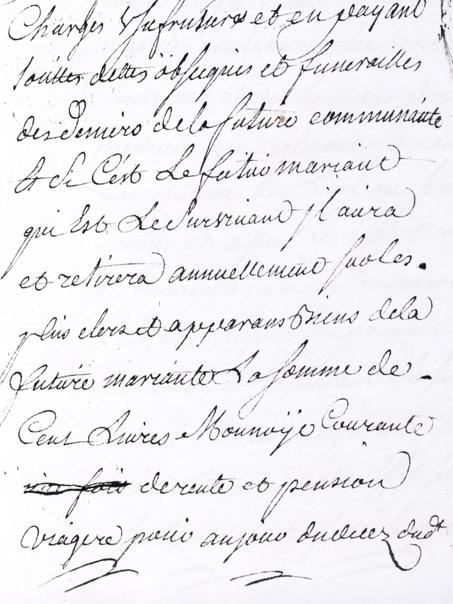 Charges Usufrutures et en payant
touttes dettes obseques et funerailles
des deniers de la future communauté
& Si C'est Le futur mariant
qui Est Le Survivant jl aura
et retirera annuellement sur les
plus clers et apparans Biens de la
future mariante La somme de
Cent Livres Monnoÿe Courante
de rente et pension
viagere pour au jour du decez dud